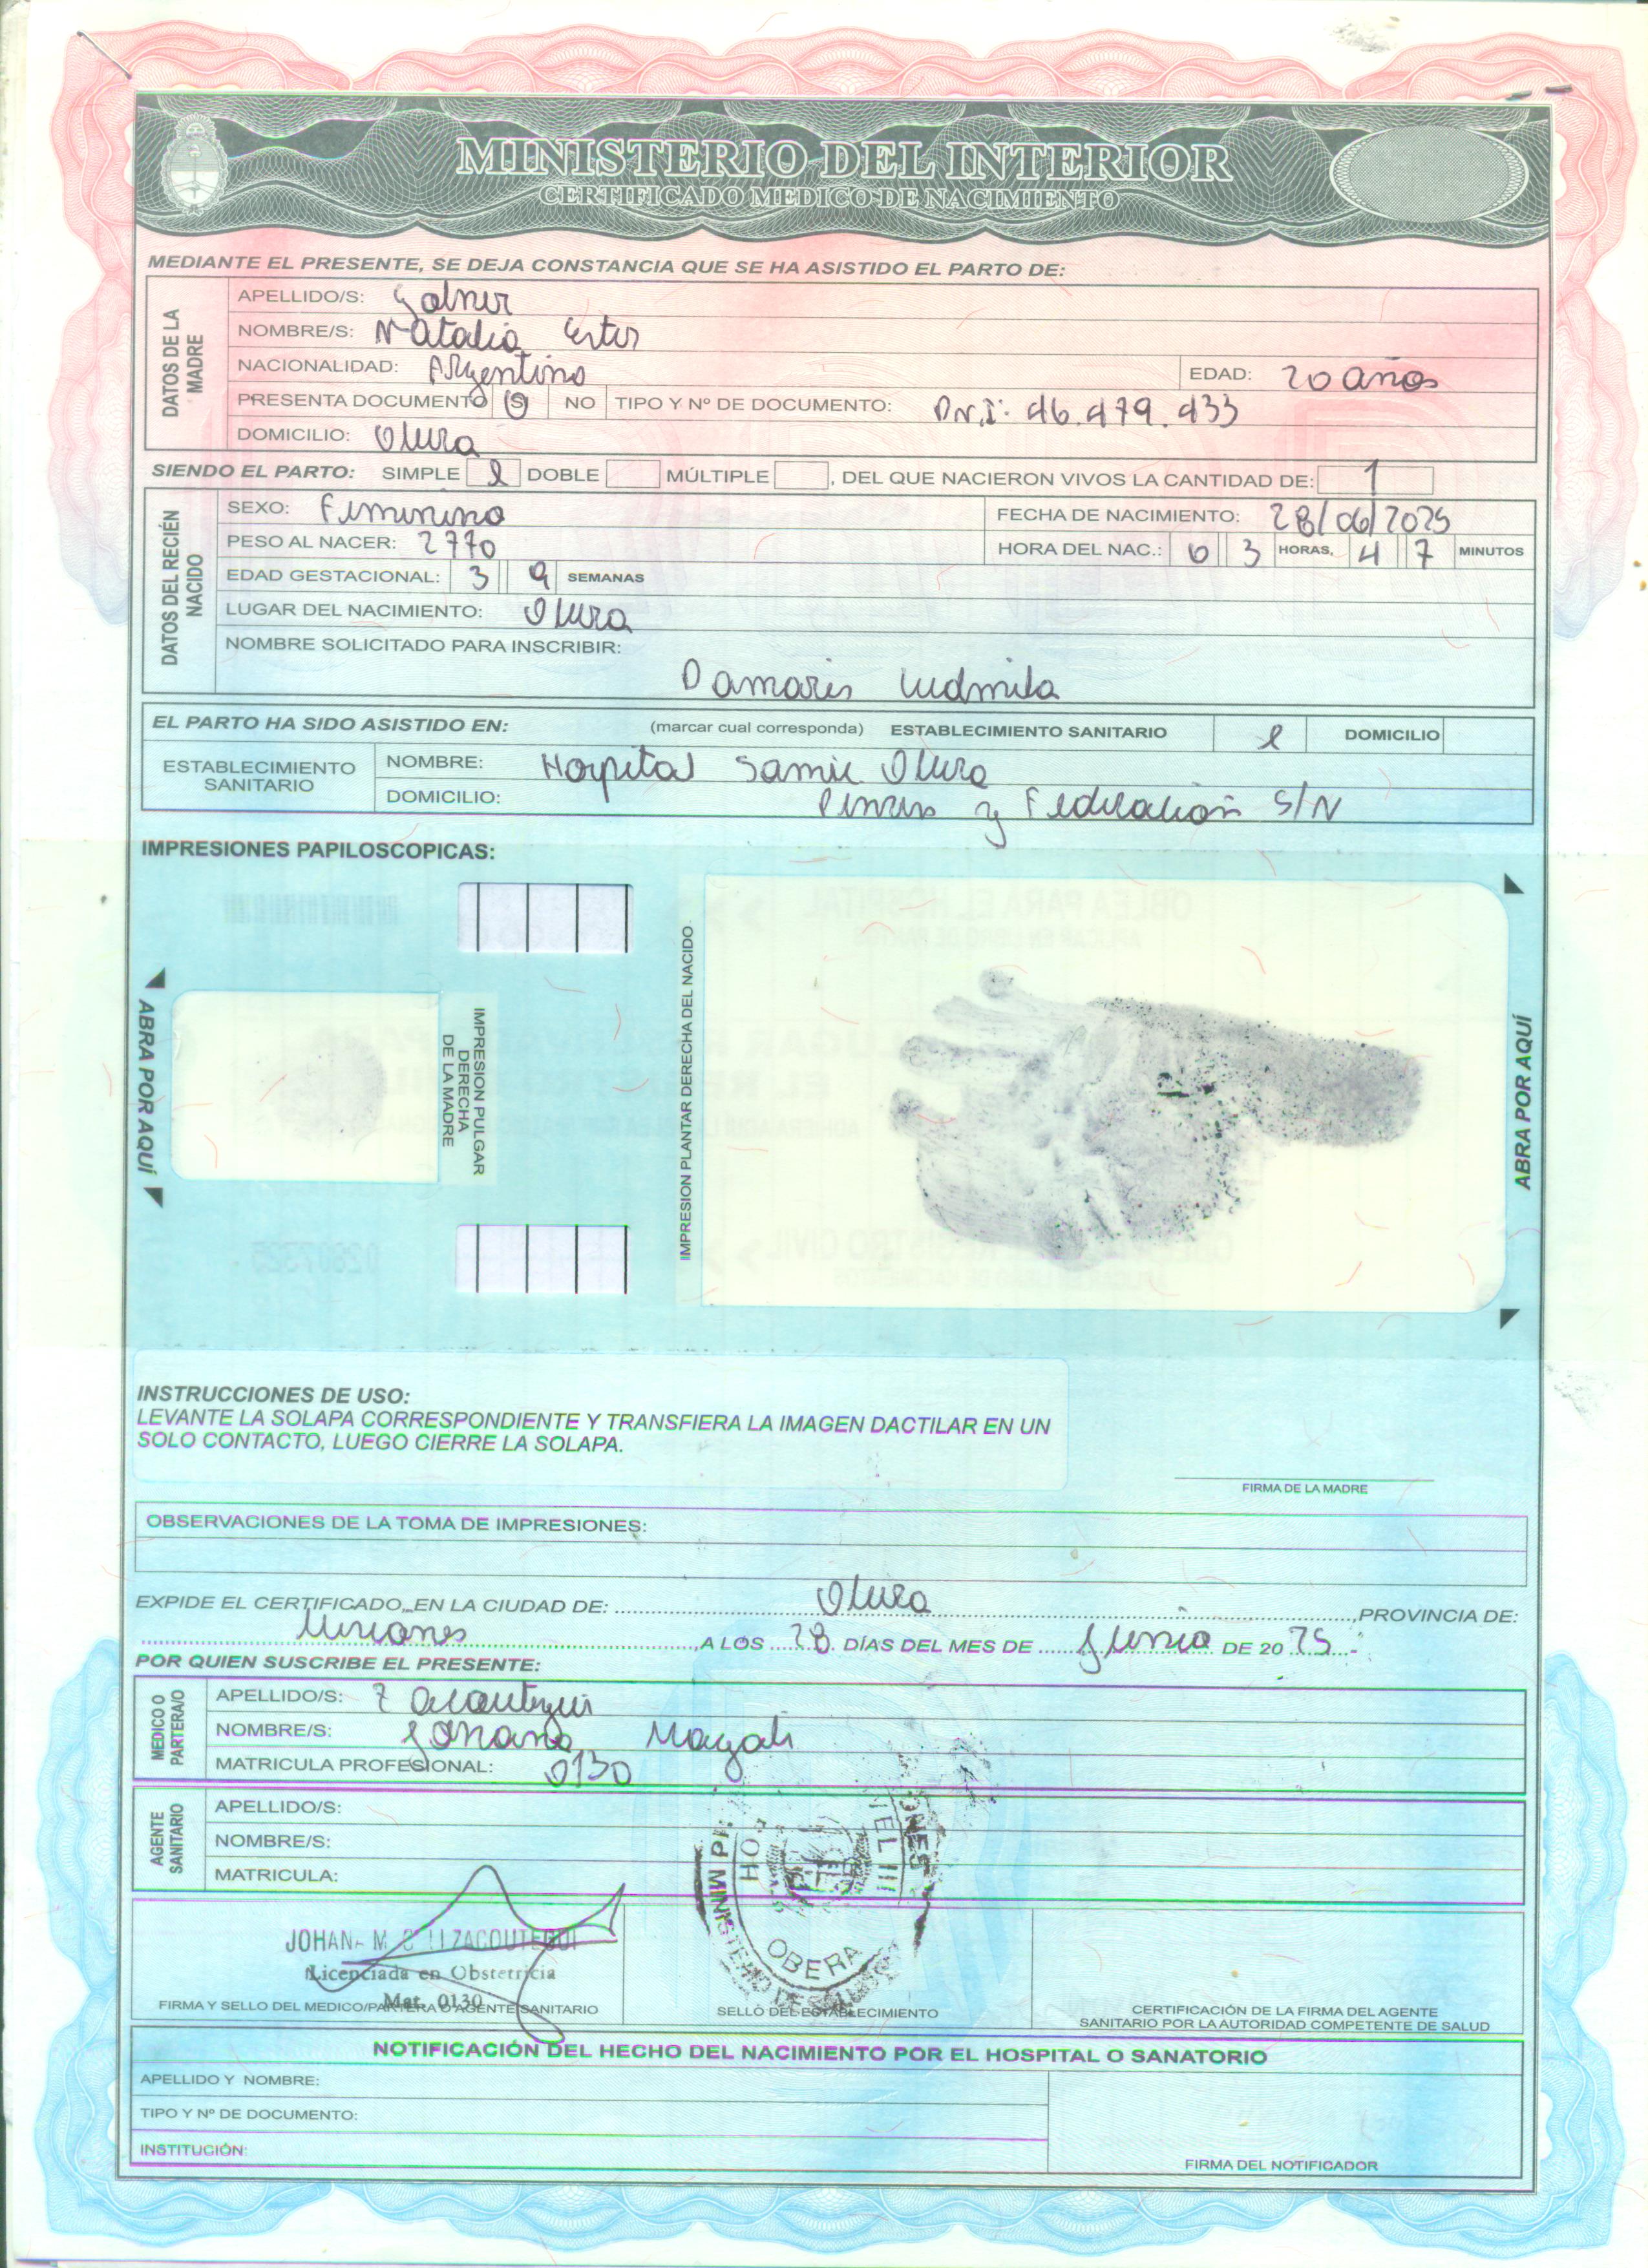 MINISTERIO DEL INTERIOR
CERTIFICADO MEDICO DE NACIMIENTO
MEDIANTE EL PRESENTE, SE DEJA CONSTANCIA QUE SE HA ASISTIDO EL PARTO DE:
DATOS DE LA MADRE
APELLIDO/S:
NOMBRE/S: Natalia Ester
NACIONALIDAD: Argentina EDAD: 20 años
PRESENTA DOCUMENTO SI NO TIPO Y Nº DE DOCUMENTO: D.N.I: 46.479.433
DOMICILIO: Obera
SIENDO EL PARTO: SIMPLE DOBLE MÚLTIPLE , DEL QUE NACIERON VIVOS LA CANTIDAD DE: 1
DATOS DEL RECIÉN NACIDO
SEXO: Femenino FECHA DE NACIMIENTO: 28/06/2025
PESO AL NACER: 2770 HORA DEL NAC.: 0 3 HORAS, 4 7 MINUTOS
EDAD GESTACIONAL: 3 9 SEMANAS
LUGAR DEL NACIMIENTO: Obera
NOMBRE SOLICITADO PARA INSCRIBIR:
Damaris Ludmila
EL PARTO HA SIDO ASISTIDO EN: (marcar cual corresponda) ESTABLECIMIENTO SANITARIO DOMICILIO
ESTABLECIMIENTO SANITARIO
NOMBRE: Hospital Samic Obera
DOMICILIO: y Federación S/N
IMPRESIONES PAPILOSCOPICAS:
ABRA POR AQUÍ
IMPRESION PULGAR DERECHA DE LA MADRE
IMPRESION PLANTAR DERECHA DEL NACIDO
ABRA POR AQUÍ
INSTRUCCIONES DE USO:
LEVANTE LA SOLAPA CORRESPONDIENTE Y TRANSFIERA LA IMAGEN DACTILAR EN UN
SOLO CONTACTO, LUEGO CIERRE LA SOLAPA.
FIRMA DE LA MADRE
OBSERVACIONES DE LA TOMA DE IMPRESIONES:
EXPIDE EL CERTIFICADO, EN LA CIUDAD DE: Obera ,PROVINCIA DE:
Misiones ,A LOS 28 DÍAS DEL MES DE Junio DE 20 25.-
POR QUIEN SUSCRIBE EL PRESENTE:
MEDICO O PARTERA/O
APELLIDO/S: Zacoutegui
NOMBRE/S: Johana Magali
MATRICULA PROFESIONAL: 0130
AGENTE SANITARIO
APELLIDO/S:
NOMBRE/S:
MATRICULA:
JOHANA M. ZACOUTEGUI
Licenciada en Obstetricia
Mat. 0130
OBERA
FIRMA Y SELLO DEL MEDICO/PARTERA O AGENTE SANITARIO
SELLO DEL ESTABLECIMIENTO
CERTIFICACIÓN DE LA FIRMA DEL AGENTE
SANITARIO POR LA AUTORIDAD COMPETENTE DE SALUD
NOTIFICACIÓN DEL HECHO DEL NACIMIENTO POR EL HOSPITAL O SANATORIO
APELLIDO Y NOMBRE:
TIPO Y Nº DE DOCUMENTO:
INSTITUCIÓN:
FIRMA DEL NOTIFICADOR